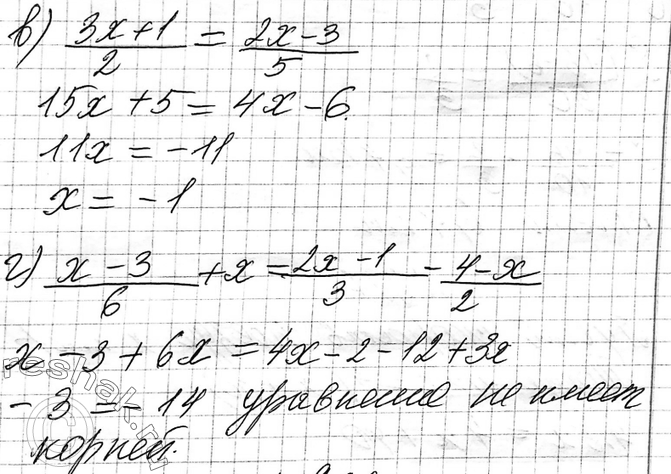 в) (3x+1)/2 = (2x-3)/5
15x + 5 = 4x - 6.
11x = -11
x = -1
г) (x-3)/6 + x = (2x-1)/3 - (4-x)/2
x - 3 + 6x = 4x - 2 - 12 + 3x
-3 = -14 уравнение не имеет
корней.
reshak.ru